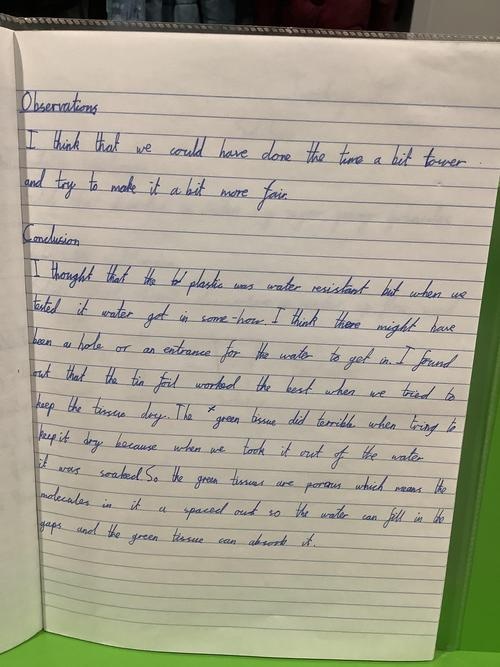 Observations
I think that we could have done the time a bit tower
and try to make it a bit more fair.
Conclusion
I thought that the plastic was water resistant but when we
tested it water got in some-how. I think there might have
been a hole or an entrance for the water to get in. I found
out that the tin foil worked the best when we tried to
keep the tissue dry. The green tissue did terrible when tring to
keep it dry because when we took it out of the water
it was soaked. So the green tissues are porous which means the
molecules in it a spaced out so the water can fill in the
gaps and the green tissue can absorb it.